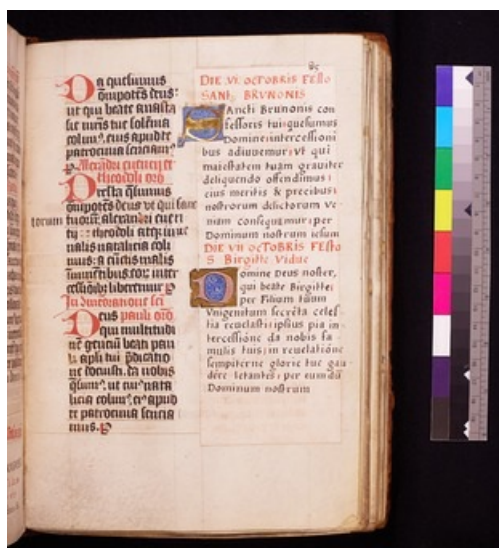 Da quesumus
omnipotens deus:
ut qui beate anasta
sie
colimus, eius apud te
patrocinia
Alexandri
theodoli oro
Presta quesumus
omnipotens deus ut qui sanc
torum tuorum alexandri
theodoli atque
natalicia coli
mus: a cunctis malis
inter
cessionibus liberemur
In
Deus pauli oro
qui multitudi
nem gentium beati pau
li apostoli tui predicatio
ne docuisti. da nobis
quesumus. ut cuius nata
licia colimus. eius apud
te patrocinia sencia
mus.
85
DIE VI OCTOBRIS FESTO
SANCTI BRUNONIS
Sancti Brunonis con
fessoris tui quesumus
Domine intercessioni
bus adiuvemur: vt qui
maiestatem tuam grauiter
delinquendo offendimus:
eius meritis & precibus:
nostrorum delictorum ve
niam consequamur: per
Dominum nostrum iesum
DIE VII OCTOBRIS FESTO
S Birgitte Vidue
Domine Deus noster,
qui beate Birgitte:
per Filium tuum
Vnigenitum secreta celes
tia reuelasti: ipsius pia in
tercessione da nobis fa
mulis tuis: in reuelatione
sempiterne glorie tue gau
dere letantes: per eumdem
Dominum nostrum